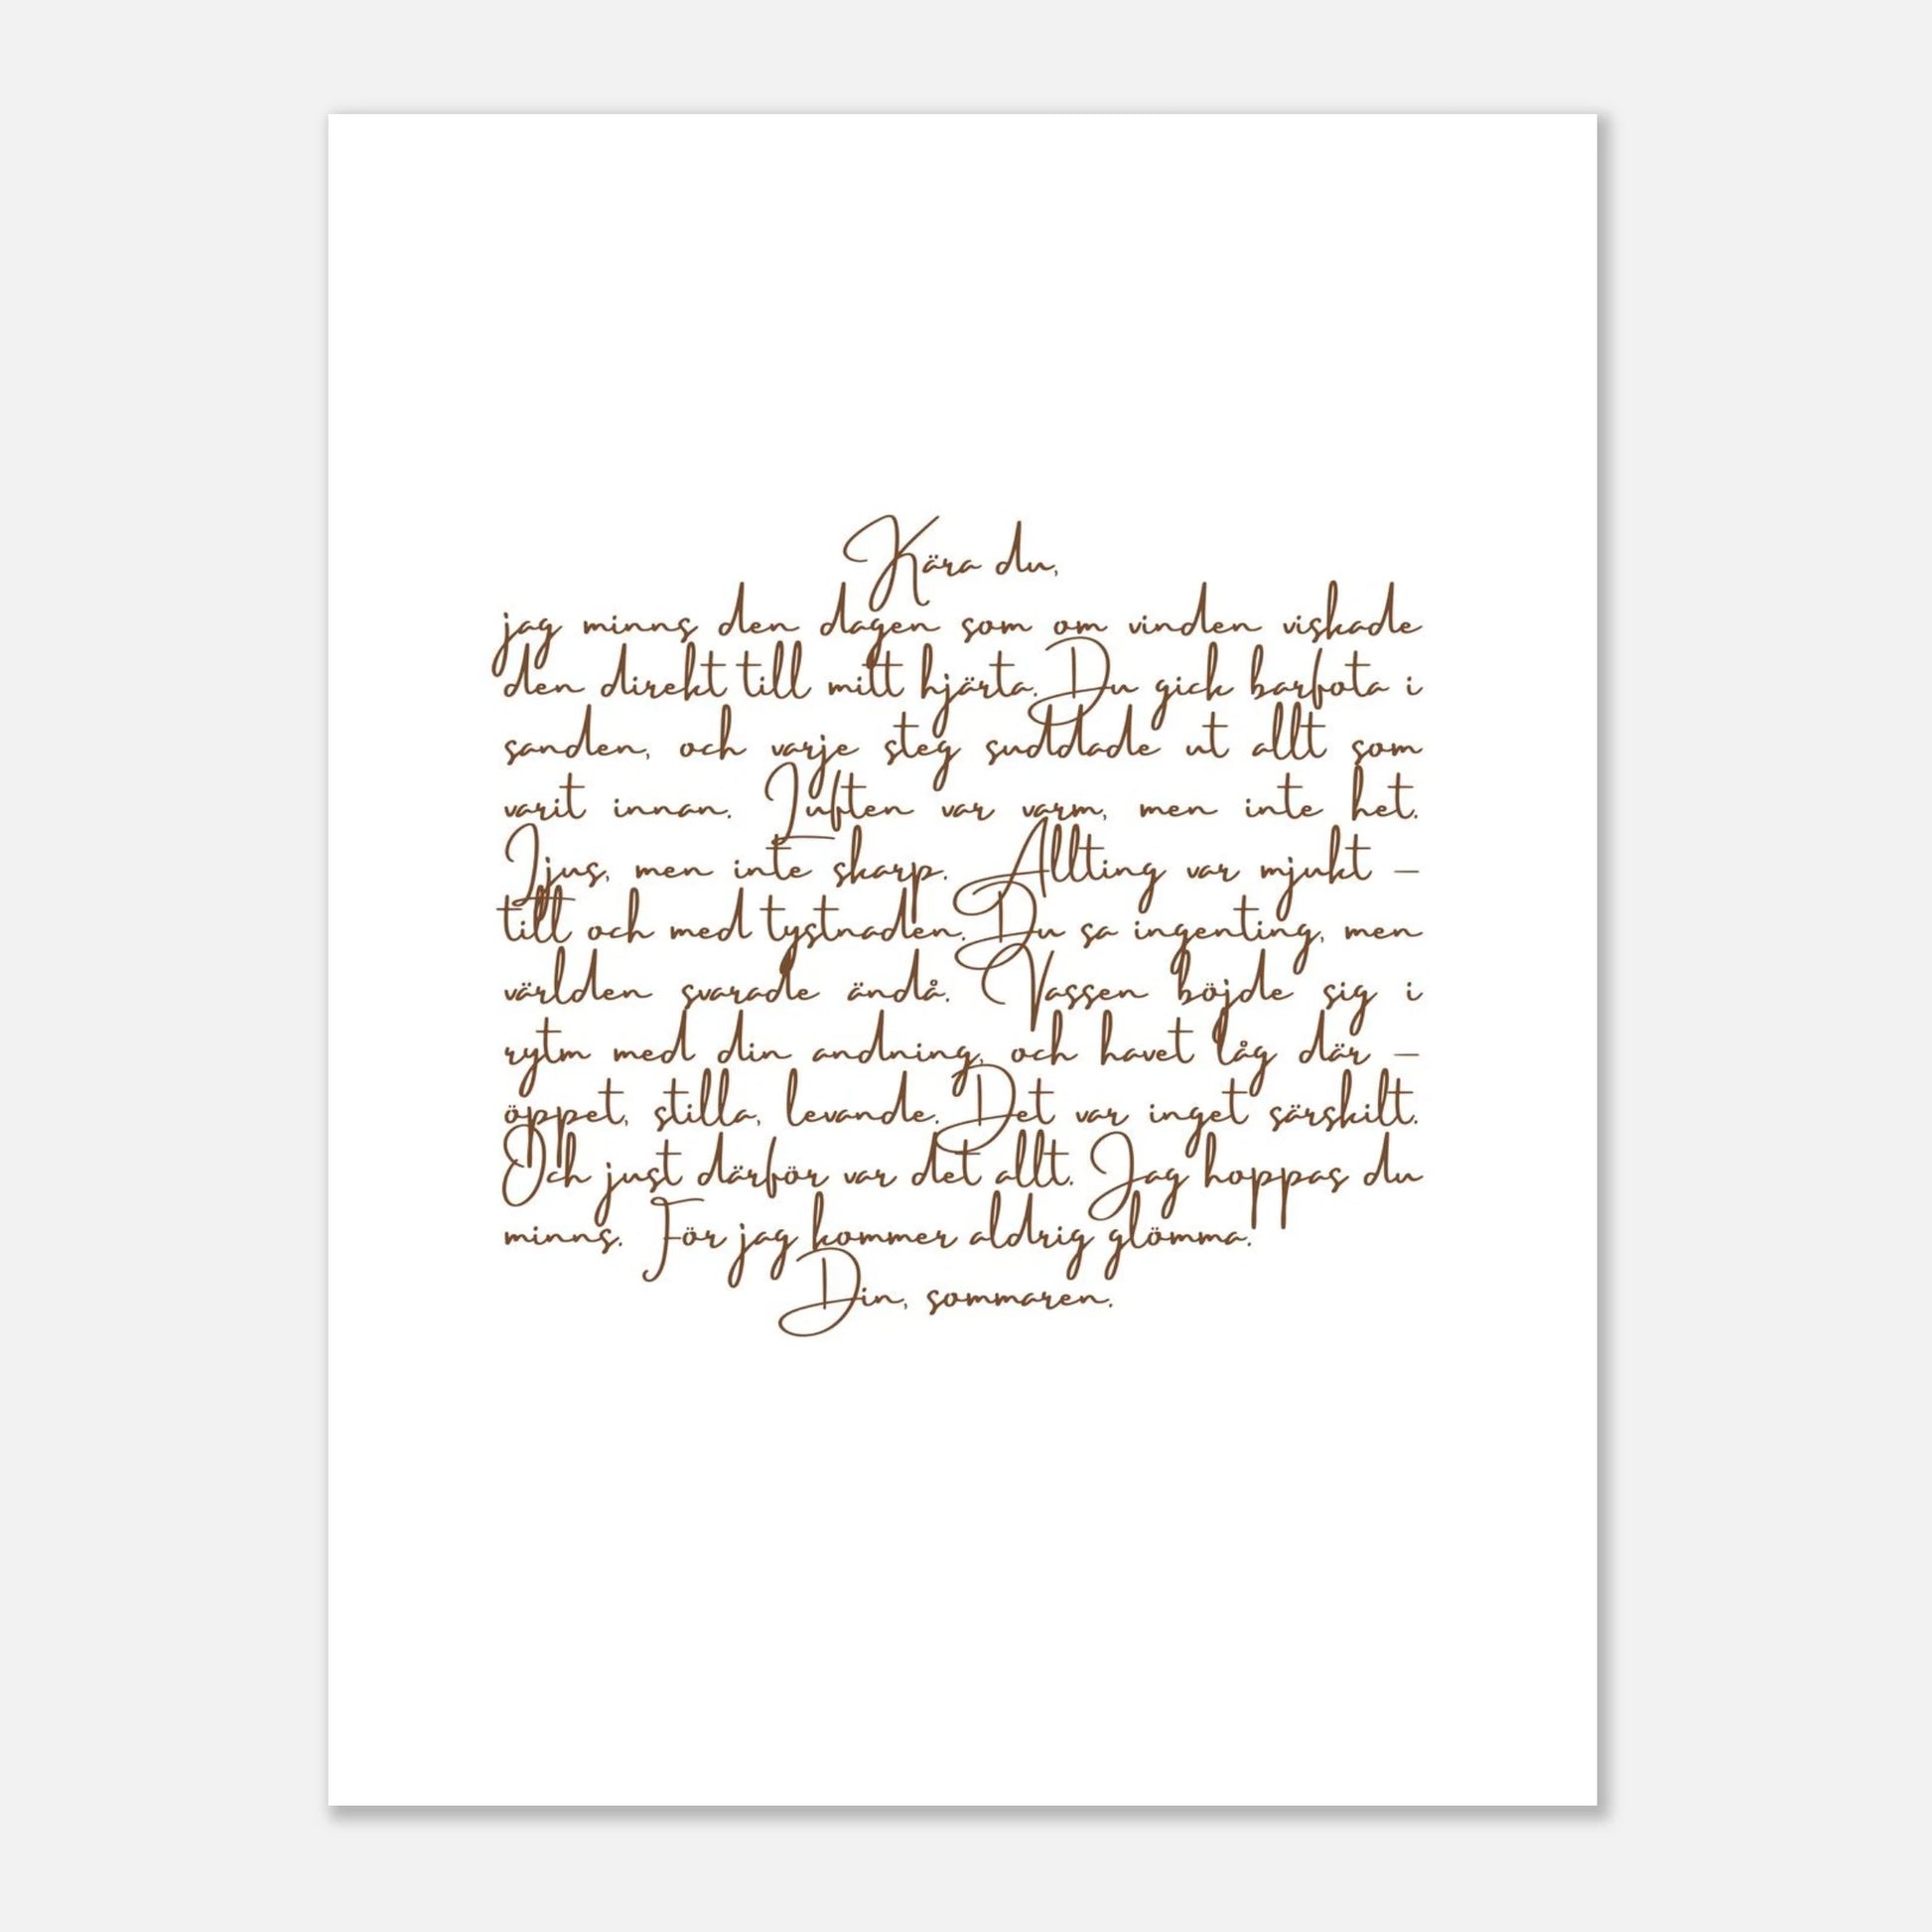 Kära du,
jag minns den dagen som om vinden viskade
den direkt till mitt hjärta. Du gick barfota i
sanden, och varje steg suddade ut allt som
varit innan. Luften var varm, men inte het.
Ljus, men inte skarp. Allting var mjukt –
till och med tystnaden. Du sa ingenting, men
världen svarade ändå. Vassen böjde sig i
rytm med din andning, och havet låg där –
öppet, stilla, levande. Det var inget särskilt.
Och just därför var det allt. Jag hoppas du
minns. För jag kommer aldrig glömma.
Din, sommaren.